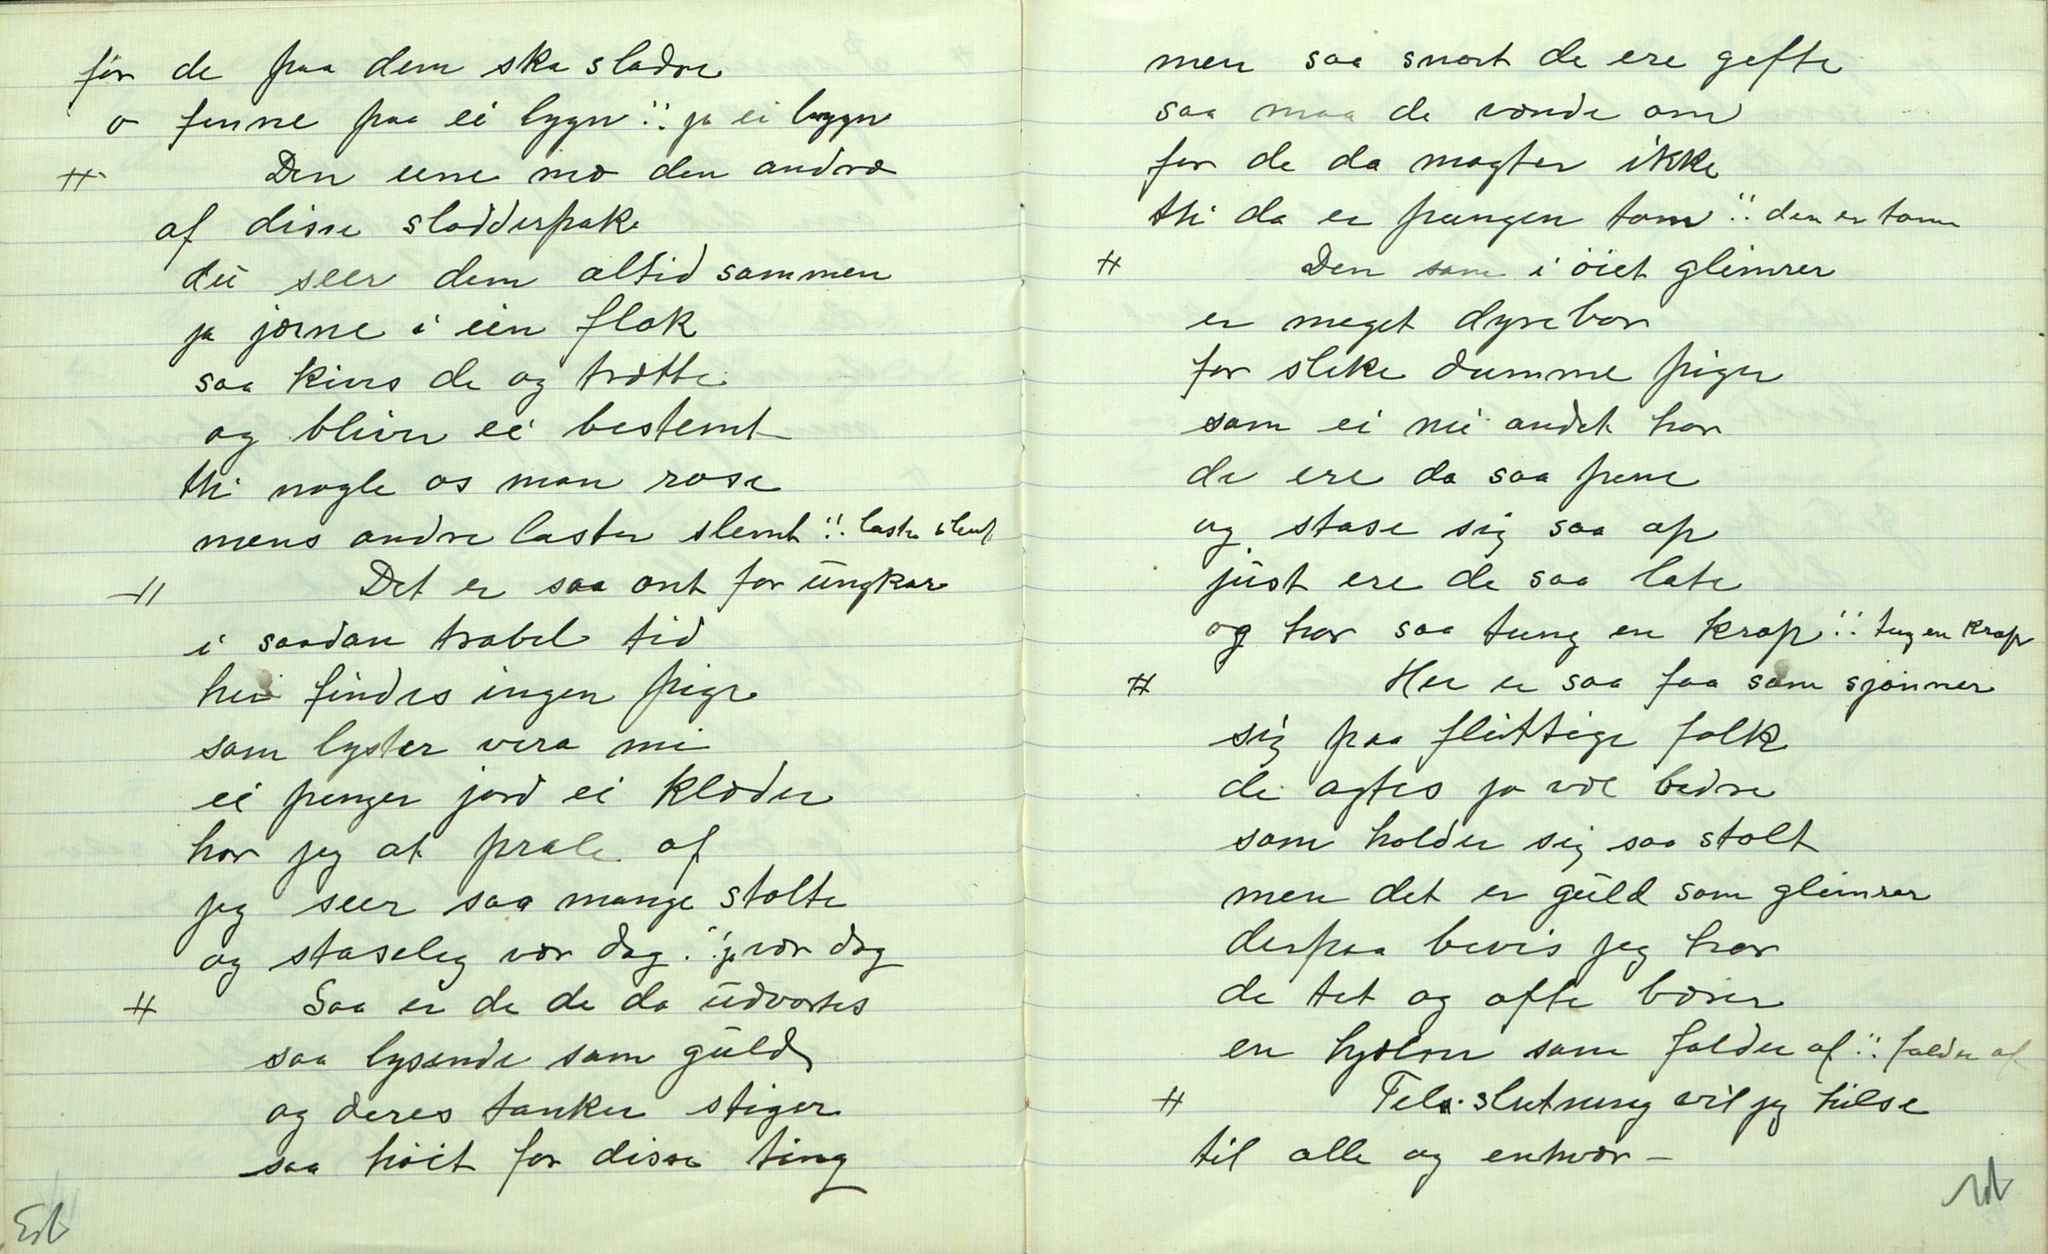 før de paa dem ska sladre
o finne paa ei løgn :: ja ei løgn
# Den eene mæ den andræ
af disse sladderpak
du seer dem altid sammen
ja jærne i ein flok
saa kives de og trætte
og bliver ei bestemt
thi nogle os man rose
mens andre laster slemt :: laste slemt
# Det er saa ont for ungkar
i saadan trabel tid
her findes ingen pige
som lyster vera mi
ei penger jord ei klæder
har jeg at prale af
jeg seer saa mange stolte
og staselig vær dag :: ja vær dag
# Saa er de de da udvortes
saa lysende som guld
og deres tanker stiger
saa høit for disse ting
men saa snart de ere gefte
saa maa de vende om
for de da magter ikke
thi da er pungen tom :: den er tom
# Den som i øiet glimrer
er meget dyrebar
for slike dumme piger
som ei nu andet har
de ere da saa pene
og stase sig saa op
just ere de saa late
og har saa tung en krop :: tung en krop
# Her er saa faa som sjønner
sig paa flittige folk
de agtes ja vel bedre
som holder sig saa stolt
men det er guld som glimrer
derpaa bevis jeg har
de tet og ofte bærer
en som falder af :: falder af
# Tel slutning vil jeg hilse
til alle og enhvær –